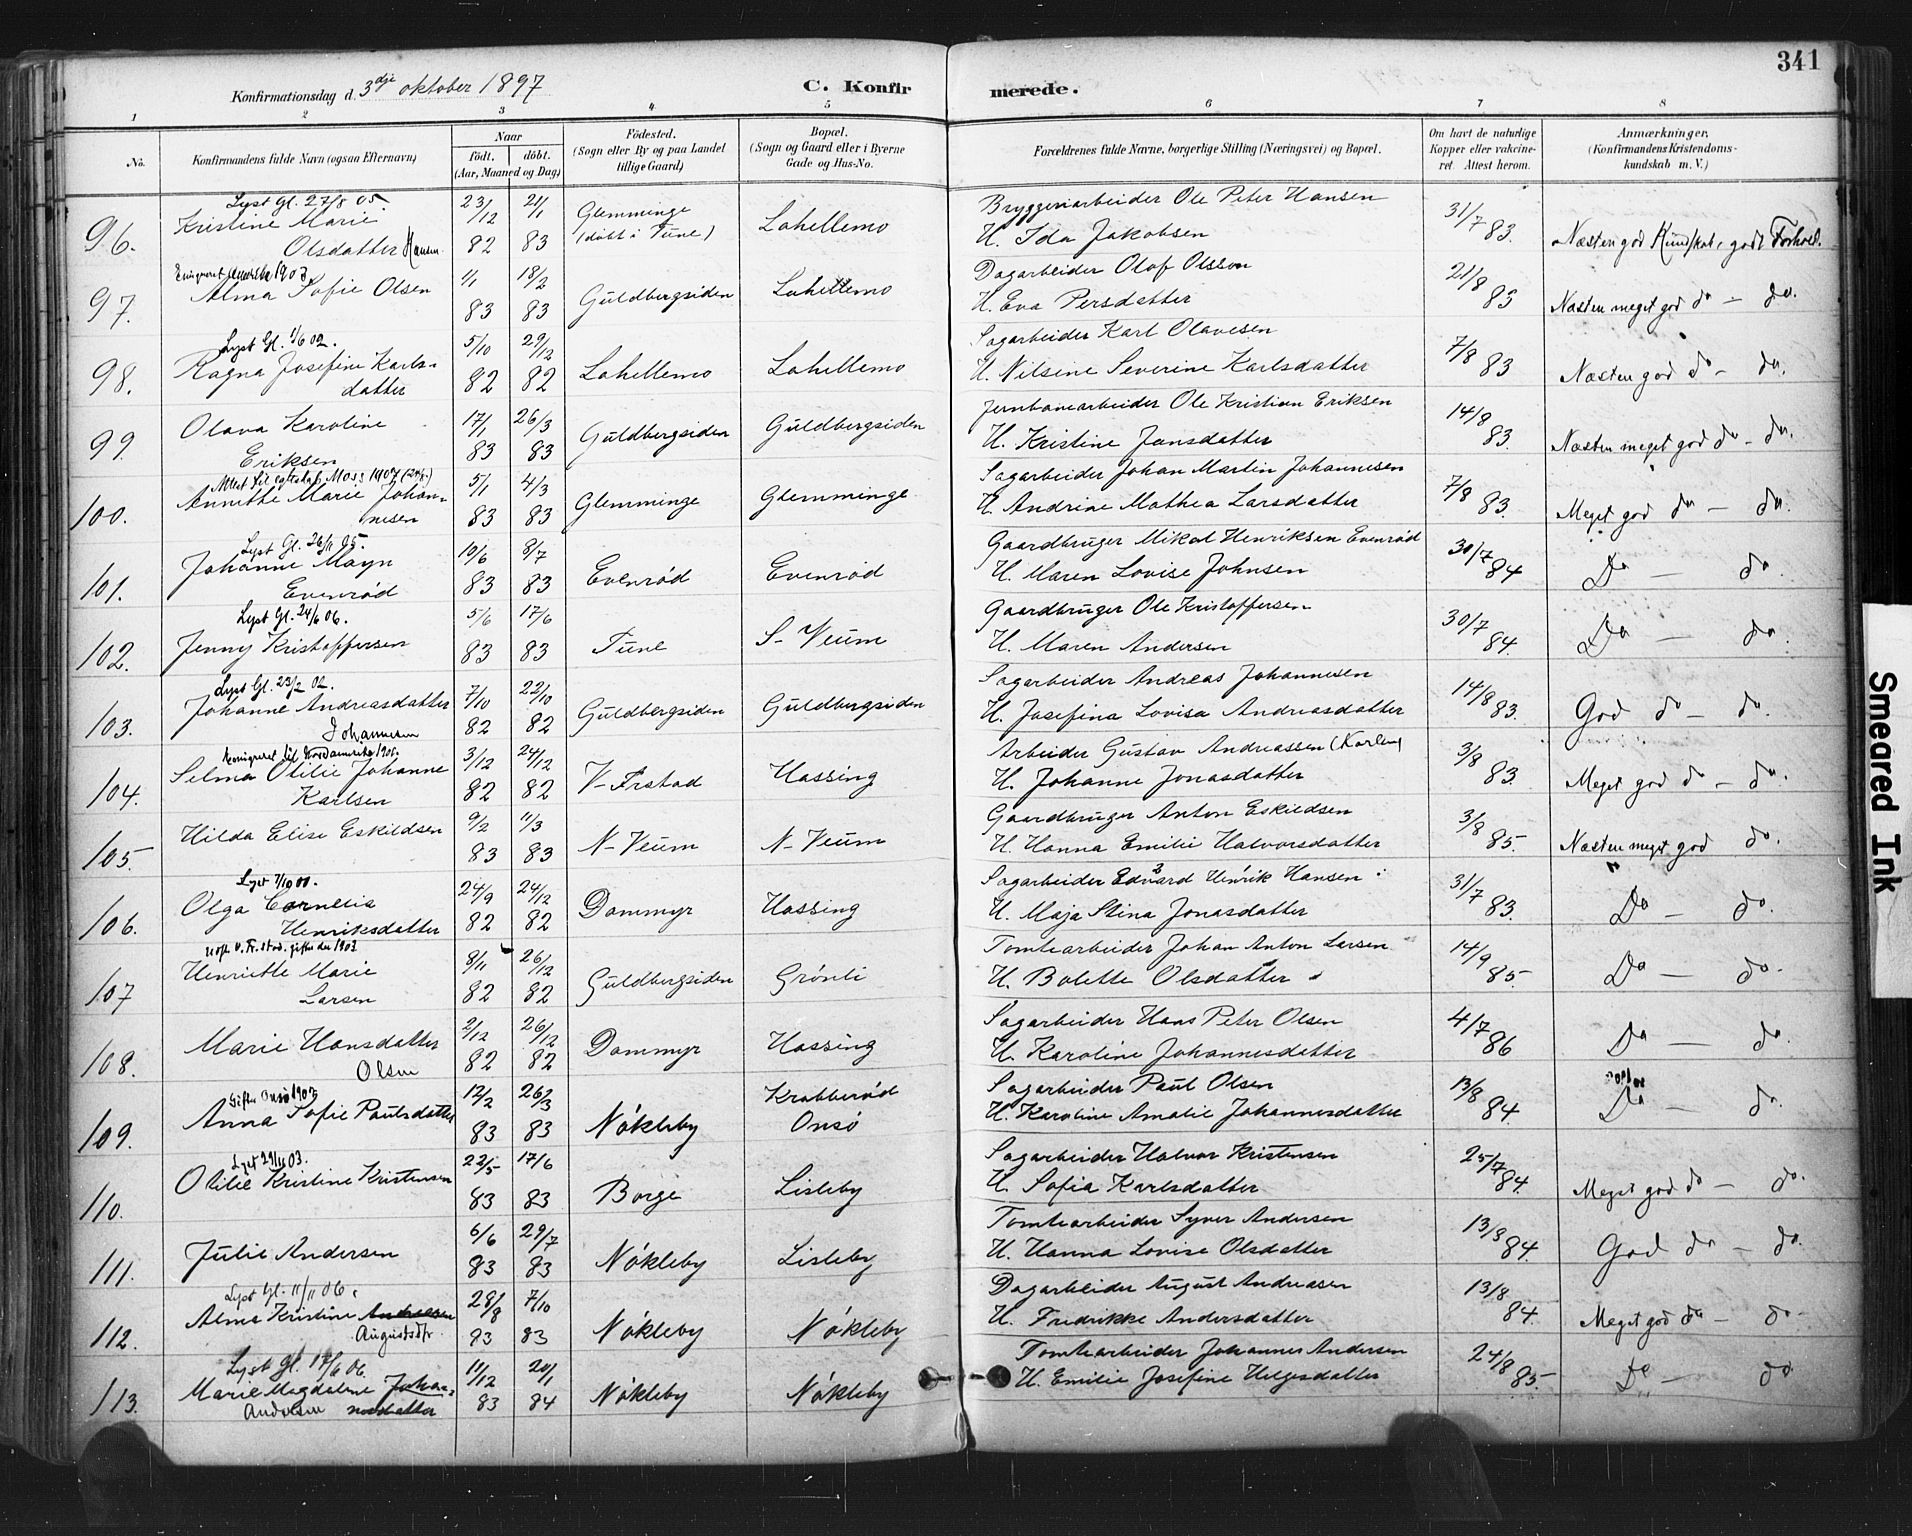 341
Konfirmationsdag d. 3dje oktober 1897
C. Konfirmerede.
1 2 3 4 5 6 7 8
No.
Konfirmandens fulde Navn (ogsaa Efternavn)
Naar
födt. döbt.
(Aar, Maaned og Dag)
Födested.
(Sogn eller By og paa Landet
tillige Gaard)
Bopæl.
(Sogn og Gaard eller i Byerne
Gade og Hus-No.
Forældrenes fulde Navne, borgerlige Stilling (Næringsvei) og Bopæl.
Om havt de naturlige
Kopper eller vakcineret
Attest herom.
Anmærkninger.
(Konfirmandens Kristendomskundskab
m. V.)
Lyst Gl. 27/8 05.
96. Kristine Marie 23/12 21/1 Glemminge Lahellemo Bryggeriarbeider Ole Peter Hansen 31/7 83.
Olsdatter Hansen 82 83 (döbt i Tune) H. Ida Jakobsen Næsten god Kundskab, godt Forhold.
Emigreret Amerika 1903
97. Alma Sofie Olsen 1/1 18/2 Guldbergsiden Lahellemo Dagarbeider Olof Olsson 21/8 83
83 83 H. Eva Persdatter Næsten meget god do — do.
Lyst Gl. 1/6 02.
98. Ragna Josefine Karlsdatter 5/10 29/12 Lahellemo Lahellemo Sagarbeider Karl Olavesen 7/8 83
82 82 H. Nilsine Severine Karlsdatter Næsten god do — do.
99. Olava Karoline 17/1 26/3 Guldbergsiden Guldbergsiden Jernbanearbeider Ole Kristian Eriksen 14/8 83.
Eriksen 83 83 H. Kristine Jansdatter Næsten meget god do — do.
Attest til ægteskab Moss 1907
100. Annette Marie Johannesen 5/1 4/3 Glemminge Glemminge Sagarbeider Johan Martin Johannesen 7/8 83.
83 83 H. Andrine Mathea Larsdatter Meget god do — do.
Lyst Gl. 26/11 05.
101. Johanne Mayn 10/6 8/7 Evenröd Evenröd Gaardbruger Mikal Henriksen Evenröd 30/7 84
Evenröd 83 83 H. Maren Lovise Johnsen Do — do.
Lyst Gl. 24/6 06.
102. Jenny Kristoffersen 5/6 17/6 Tune S- Veum Gaardbruger Ole Kristoffersen 30/7 84.
83 83 H. Maren Andersen Do — do.
Lyst Gl. 23/2 02.
103. Johanne Andreasdatter 7/10 22/10 Guldbergsiden Guldbergsiden Sagarbeider Andreas Johannesen 14/8 83.
Johannesen 82 82 H. Josefina Lovisa Andreasdatter God do — do.
Emigreret til Nordamerika
104. Selma Otilie Johanne 3/12 24/12 V- Frstad Hassing Arbeider Gustav Andreassen (Karlsen) 3/8 83.
Karlsen 82 82 H. Johanne Jonasdatter Meget god do — do.
105. Hilda Elise Eskildsen 9/2 11/3 N- Veum N- Veum Gaardbruger Anton Eskildsen 3/8 85.
83 83 H. Hanna Emilie Halvorsdatter Næsten meget god do.
Lyst 7/10 00.
106. Olga Cornelia 24/9 24/12 Dammyr Hassing Sagarbeider Edvard Henrik Hansen 31/7 83.
Henriksdatter 82 82 H. Maja Stina Jonasdatter Do — do.
V. Fr.stad. 1903
107 Henriette Marie 8/11 26/12 Guldbergsiden Grönli Tomtearbeider Johan Anton Larsen 14/9 85.
Larsen 82 82 H. Bolette Olsdatter Do — do.
108. Marie Hansdatter 2/12 26/12 Dammyr Hassing Sagarbeider Hans Peter Olsen 4/7 86
Olsen 82 82 H. Karoline Johannesdatter Do — do.
Gift Onsö 1907
109. Anna Sofie Paulsdatter 12/2 26/3 Nökleby Krabberöd Sagarbeider Paul Olsen 13/8 84.
83 83 Onsö H. Karoline Amalie Johannesdatter Do — do.
Lyst 29/11 03.
110. Otilie Kristine Kristensen 22/5 17/6 Borge Lisleby Sagarbeider Halvor Kristensen 25/7 84.
83 83 H. Sofia Karlsdatter Meget god do — do.
111. Julie Andersen 6/6 29/7 Nökleby Lisleby Tomtearbeider Syver Andersen 13/3 84.
83 83 H. Hanna Lovise Olsdatter God do — do.
Lyst Gl. 11/11 06.
112. Alma Kristine Andreasen 28/8 7/10 Nökleby Nökleby Dagarbeider August Andreasen 13/8 84.
Augustsdtr. 93 83 H. Fredrikke Andersdatter Meget god do — do
Lyst Gl. 17/6 06.
113. Marie Magdalene Johannesdatter 11/12 20/1 Nökleby Nökleby Tomtearbeider Johannes Andersen 24/8 85.
Andersen 83 84 H. Emilie Josefine Helgesdatter Do — do
Smeared Ink